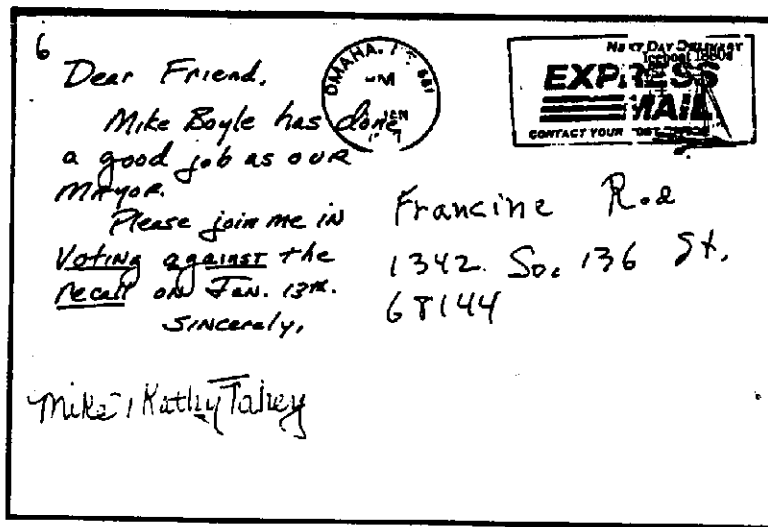 6
Dear Friend,
Mike Boyle has done
a good job as our
Mayor.
Please join me in
Voting against the
recall on Jan. 13th.
Sincerely,
Mike Kathy
OMAHA,
PM
JAN
NEXT DAY DELIVERY
EXPRESS
MAIL
CONTACT YOUR
Francine
1342 So. 136 St.
68144